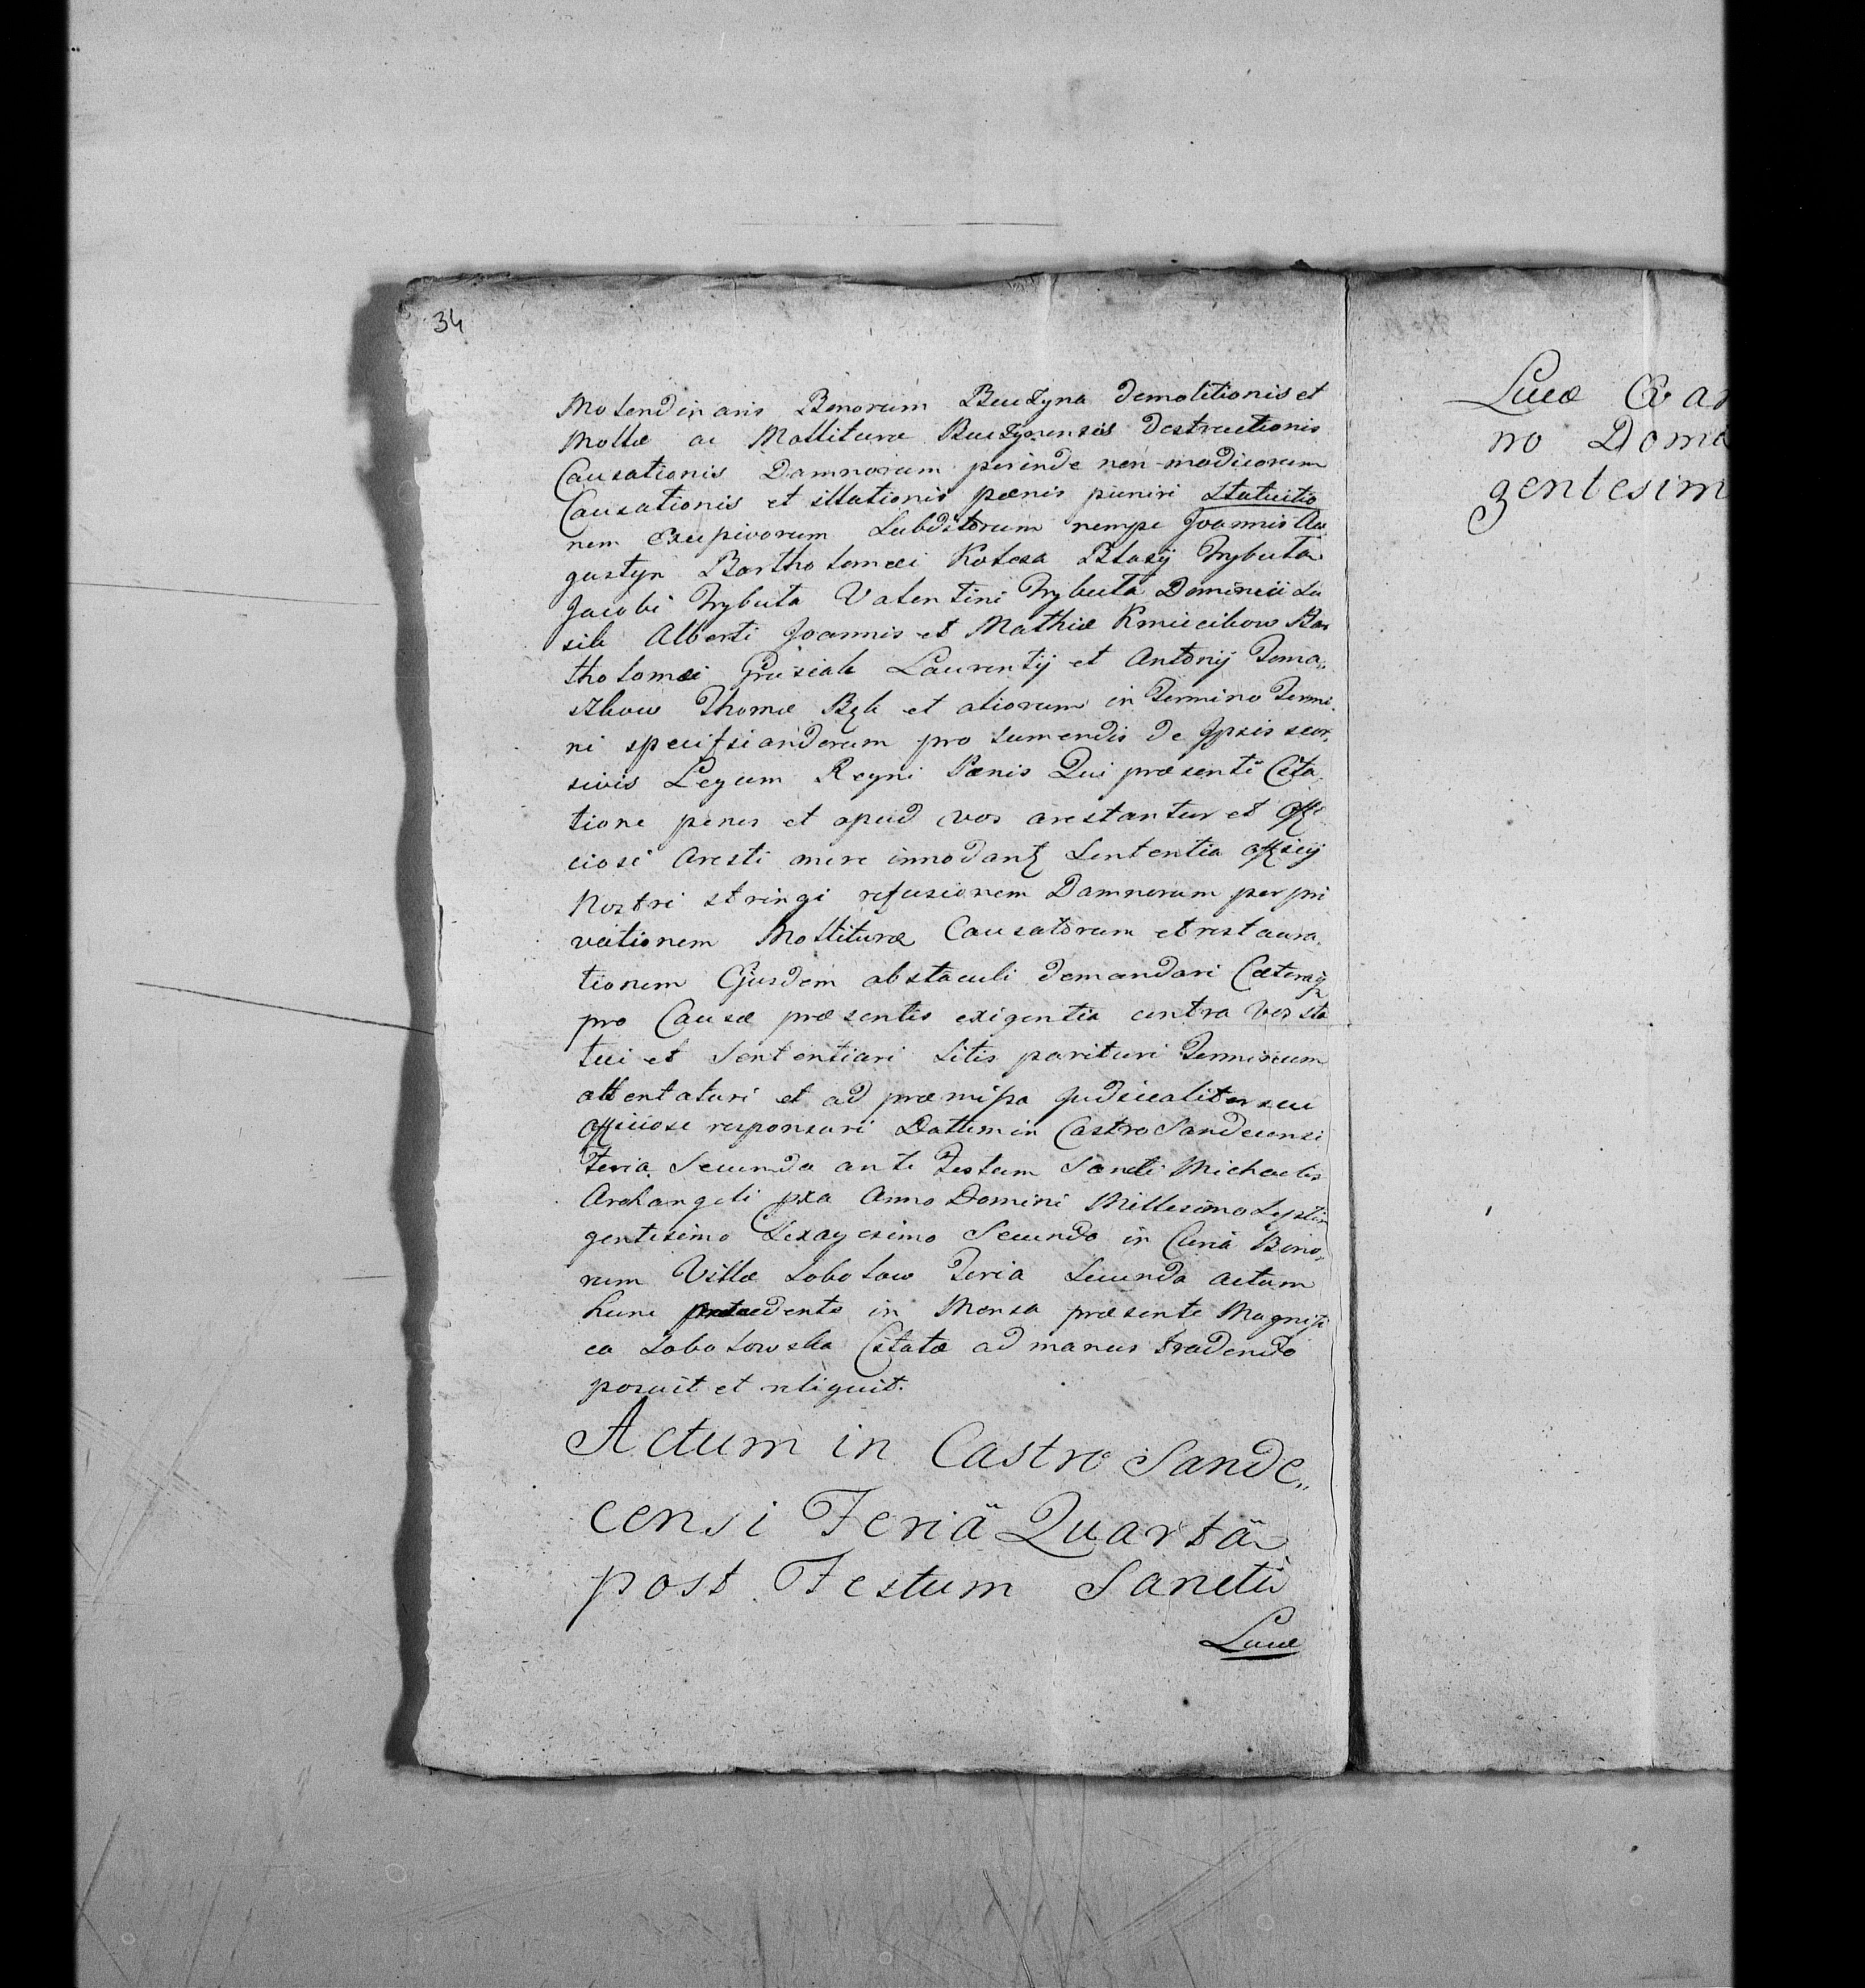 34
Molendinaris Bonorum Buczyna demolitionis et
Mollæ ac Mollituræ Buczynensis destructionis
Causationis Damnorum perinde non modicorum
Causationis et illationis pænis puniri Statuitio
nem Excepivorum Subditorum nempe Joannis Au
gustyn Bartholomæi Kolesa Blasij Trybuta
Jacobi Trybuta Valentini Trybuta Dominici Lu
sik Alberti Joannis et Mathiæ Kmiecikow Bar
tholomæi Grusiak Laurentij et Antonij Toma„
szkow Thomæ Bąk et aliorum in Termino Termi„
ni specifiandorum pro sumendis de Ipsis seor„
sivis Legum Regni Pænis Qui præsenti Cita„
tione penes et apud vos arestantur et Offi
ciosi Aresti mere innodantz Sententia Officij
Nostri stringi refusionem Damnorum per pri
vationem Mollituræ Causatorum et restaura„
tionem Ejusdem abstaculi demandari Cæteraqz
pro Causæ præsentis exigentia contra Vos sta
tui et Sententiari Litis parituri Terminum
attentaturi et ad præmissa Judicialiter seu
Officiose responsuri Dattum in Castro Sandecensi
Feria Secunda ante Festum Sancti Michaelis
Archangeli pxa Anno Domini Millesimo Septin
gentesimo Sexagesimo Secundo in Curia Bono„
rum Villæ Lobolow Feria Secunda actum
hunc præcedente in Mensa præsente Magnifi
ca Lobolowska Citatæ ad manus tradendo
posuit et reliquit.
Actum in Castro Sande„
censi Feriä Quartä
post Festum Sancti
Lucæ
Lucæ Evan
no Domi
gentesim